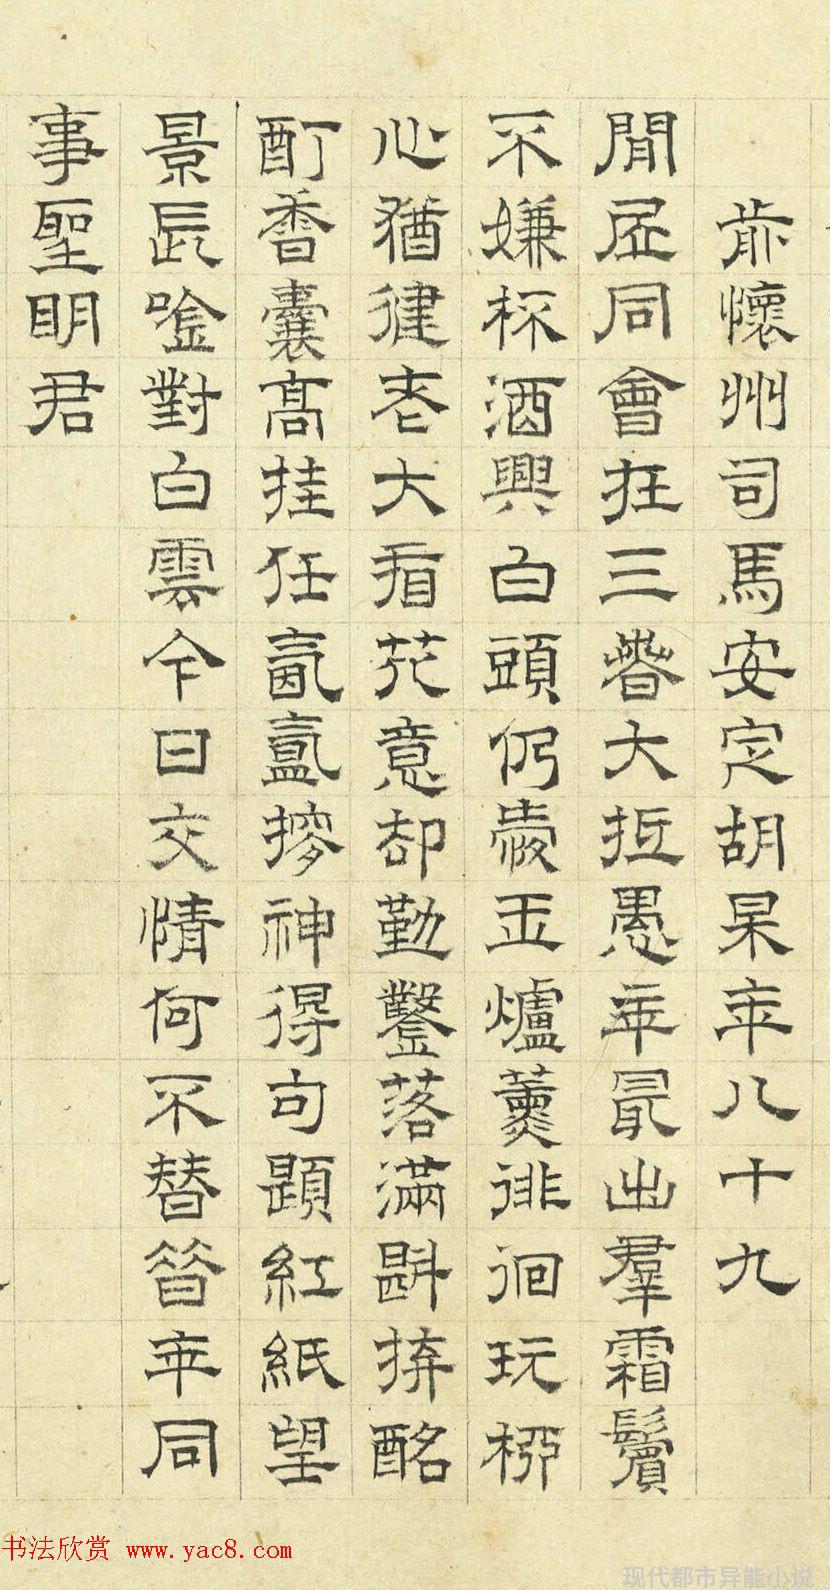 前懷州司馬安定胡杲年八十九
閒居同會在三春大抵愚年最出羣霜鬢
不嫌杯酒興白頭仍愛玉爐薰徘徊玩柳
心猶健老大看花意却勤鑿落滿斟拚酩
酊香囊高挂任氤氳搜神得句題紅紙望
景長唫對白雲今日交情何不替昔年同
事聖明君
书法欣赏 www.yac8.com
现代都市异能小说